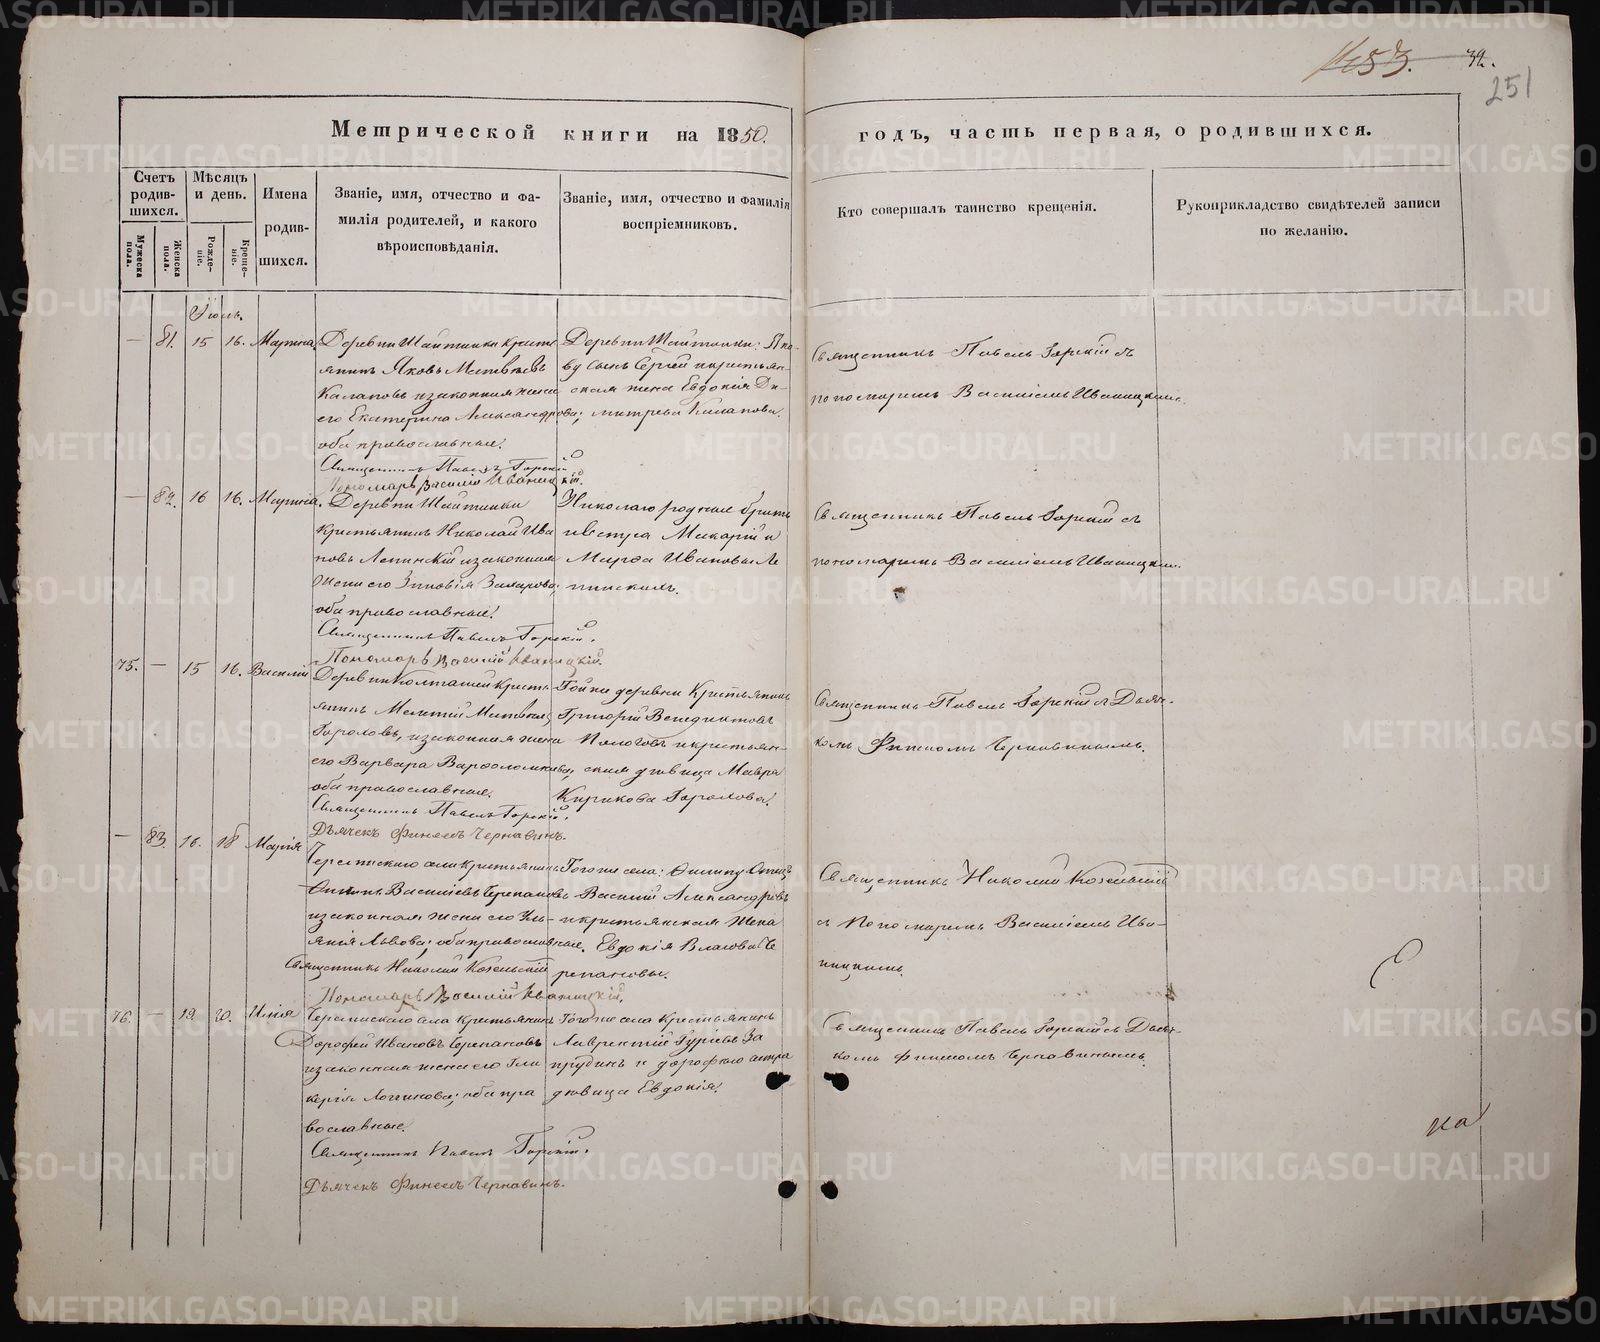 39.
251
Метрической книги на 1850.
годъ, часть первая, о родившихся.
Счетъ родив-шихся.
Мѣсяцъ и день.
Имена родив-шихся.
Званіе, имя, отчество и фа-
милія родителей, и какого
вѣроисповѣданія.
Званіе, имя, отчество и фамилія
воспріемниковъ.
Кто совершалъ таинство крещенія.
Рукоприкладство свидѣтелей записи
по желанію.
Мужеска пола.
Женска пола.
Рожде-ніе.
Креще-ніе.
Іюль.
— 81. 15 16. Марина.
Деревни Шайтанки кресть
янинъ Яковъ Матвѣевъ
Калаповъ и законная жена
его Екатерина Александрова;
оба православные.
Священникъ Павелъ Горскій
Пономарь Василій Иваницкій.
Деревни Шайтанки: Яко-
ву сынъ Сергей и крестьян-
ская жена Евдокія Ди-
митрева Калапова.
Священникъ Павелъ Горскій съ
пономаремъ Василіемъ Иваницкимъ.
— 82. 16 16. Марина.
Деревни Шайтанки
крестьянинъ Николай Ива
новъ Лепинскій и законная
жена его Зиновія Захарова;
оба православные.
Священникъ Павелъ Горскій.
Пономарь Василій Иваницкій.
Николаю родные братъ
и сестра Макарій и
Марѳа Ивановы Ле
пинскихъ.
Священникъ Павелъ Горскій съ
пономаремъ Василіемъ Иваницкимъ.
75. — 15 16. Василій
Деревни Колташей кресть
янинъ Мелетій Матвѣевъ
Гороховъ, и законная жена
его Варвара Варѳоломеева;
оба православные.
Священникъ Павелъ Горскій.
Дьячекъ Финеесъ Чернавинъ.
Тойже деревни крестьянинъ
Григорій Венедиктовъ
и крестьян-
ская дѣвица Мавра
Кирикова Горохова.
Священникъ Павелъ Горскій съ Дьяч-
комъ Финеесомъ Чернавинымъ.
— 83. 16. 18 Марія
Черемисскаго села крестьянинъ
Филипъ Василіевъ Черепановъ
и законная жена его Уль-
янія Львова; оба православные.
Священникъ Николай Козельскій
Пономарь Василій Иваницкій.
Тогоже села: Филипу отецъ
Василій Александровъ
и крестьянская жена
Евдокія Власова Че
репановы.
Священникъ Николай Козельскій
съ Пономаремъ Василіемъ Ива-
ницкимъ.
76. — 19. 20. Илія
Черемисскаго села крестьянинъ
Дорофей Ивановъ Черепановъ
и законная жена его Гли
керія Логинова; оба пра
вославные.
Священникъ Павелъ Горскій.
Дьячекъ Финеесъ Чернавинъ.
Тогоже села крестьянинъ
Лаврентій Гурьевъ За
прудинъ и Дорофею сестра
дѣвица Евдокія.
Священникъ Павелъ Горскій съ Дьяч-
комъ Финеесомъ Чернавинымъ.
на